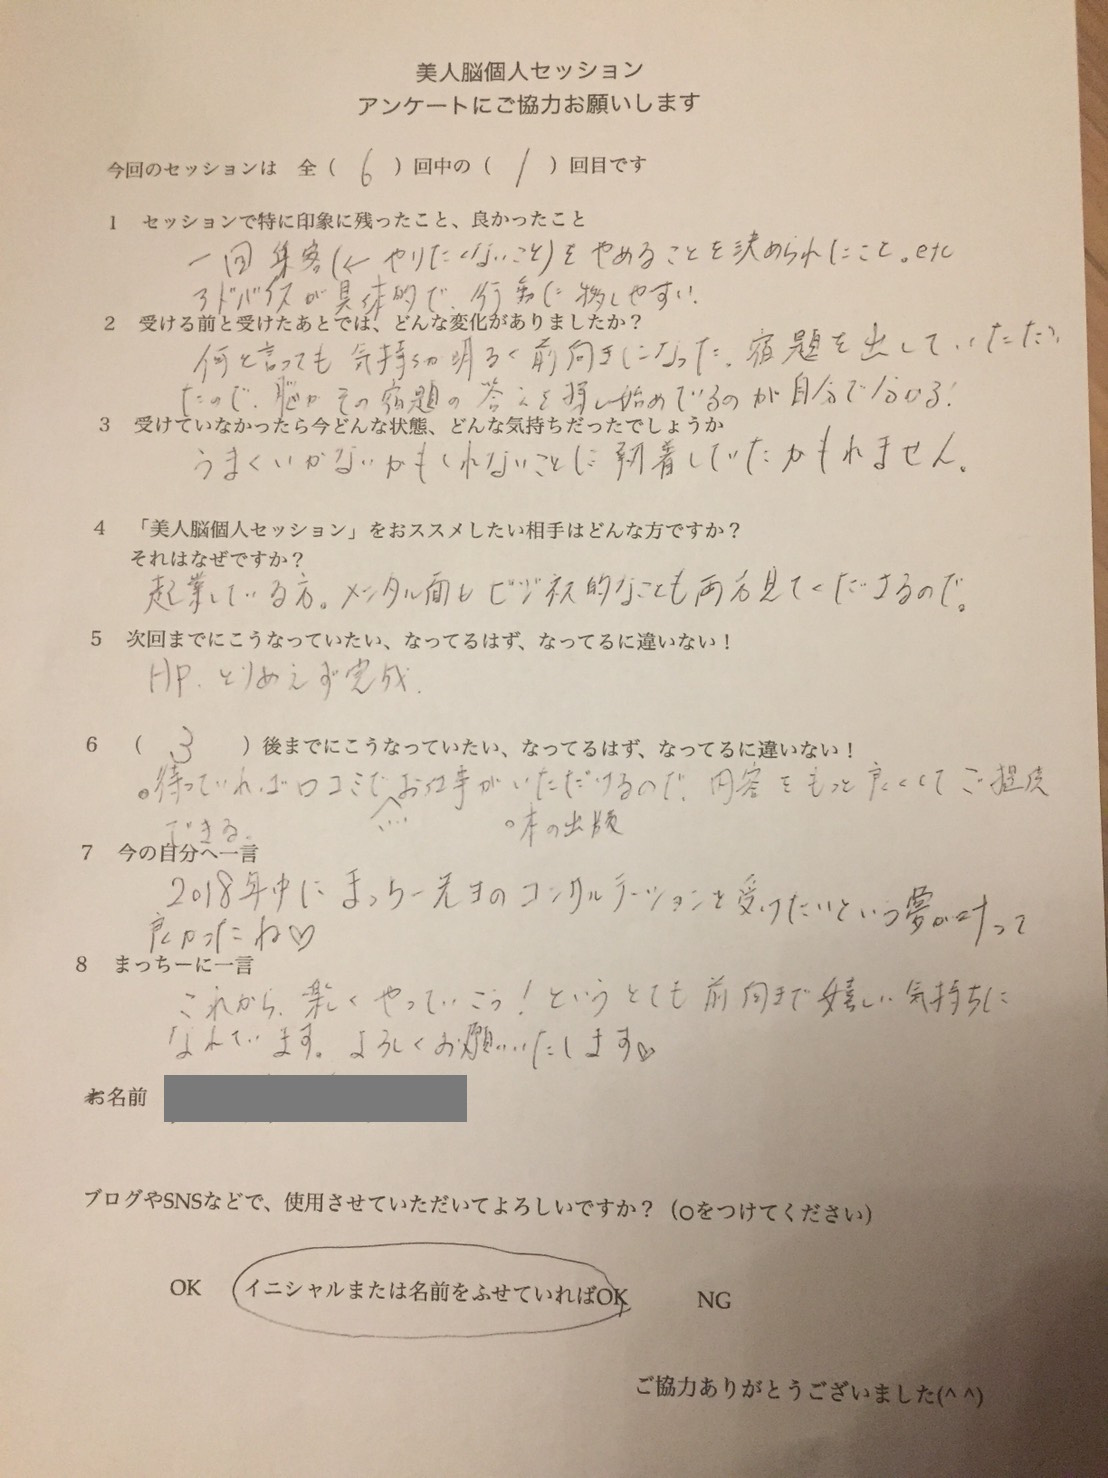 美人脳個人セッション
アンケートにご協力お願いします
今回のセッションは　全（　6　）回中の（　1　）回目です
1　セッションで特に印象に残ったこと、良かったこと
一回集客(←やりたくないこと)をやめることを決められたこと。etc
アドバイスが具体的で、行動に移しやすい.
2　受ける前と受けたあとでは、どんな変化がありましたか？
何と言っても気持ちが明るく前向きになった。宿題を出していただい
たので、脳がその宿題の答えを探し始めているのが自分で分かる!
3　受けていなかったら今どんな状態、どんな気持ちだったでしょうか
うまくいかないかもしれないことに執着していたかもれません。
4　「美人脳個人セッション」をおススメしたい相手はどんな方ですか？
それはなぜですか？
起業している方。メンタル面もビジネス的なことも両方見てくださるので。
5　次回までにこうなっていたい、なってるはず、なってるに違いない！
HP. とりあえず完成.
6　（　3　）後までにこうなっていたい、なってるはず、なってるに違いない！
。待っていれば口コミでお仕事がいただけるので、内容をもっと良くしてご提供
できる。　。本の出版
7　今の自分へ一言
2018年中にまっちー先生のコンサルテーションを受けたいという夢が叶って
良かったね♡
8　まっちーに一言
これから、楽しくやっていこう！というとても前向きで嬉しい気持ちに
なれています。よろしくお願いいたします♡
お名前
ブログやSNSなどで、使用させていただいてよろしいですか？（○をつけてください）
OK　イニシャルまたは名前をふせていればOK　NG
ご協力ありがとうございました(^ ^)